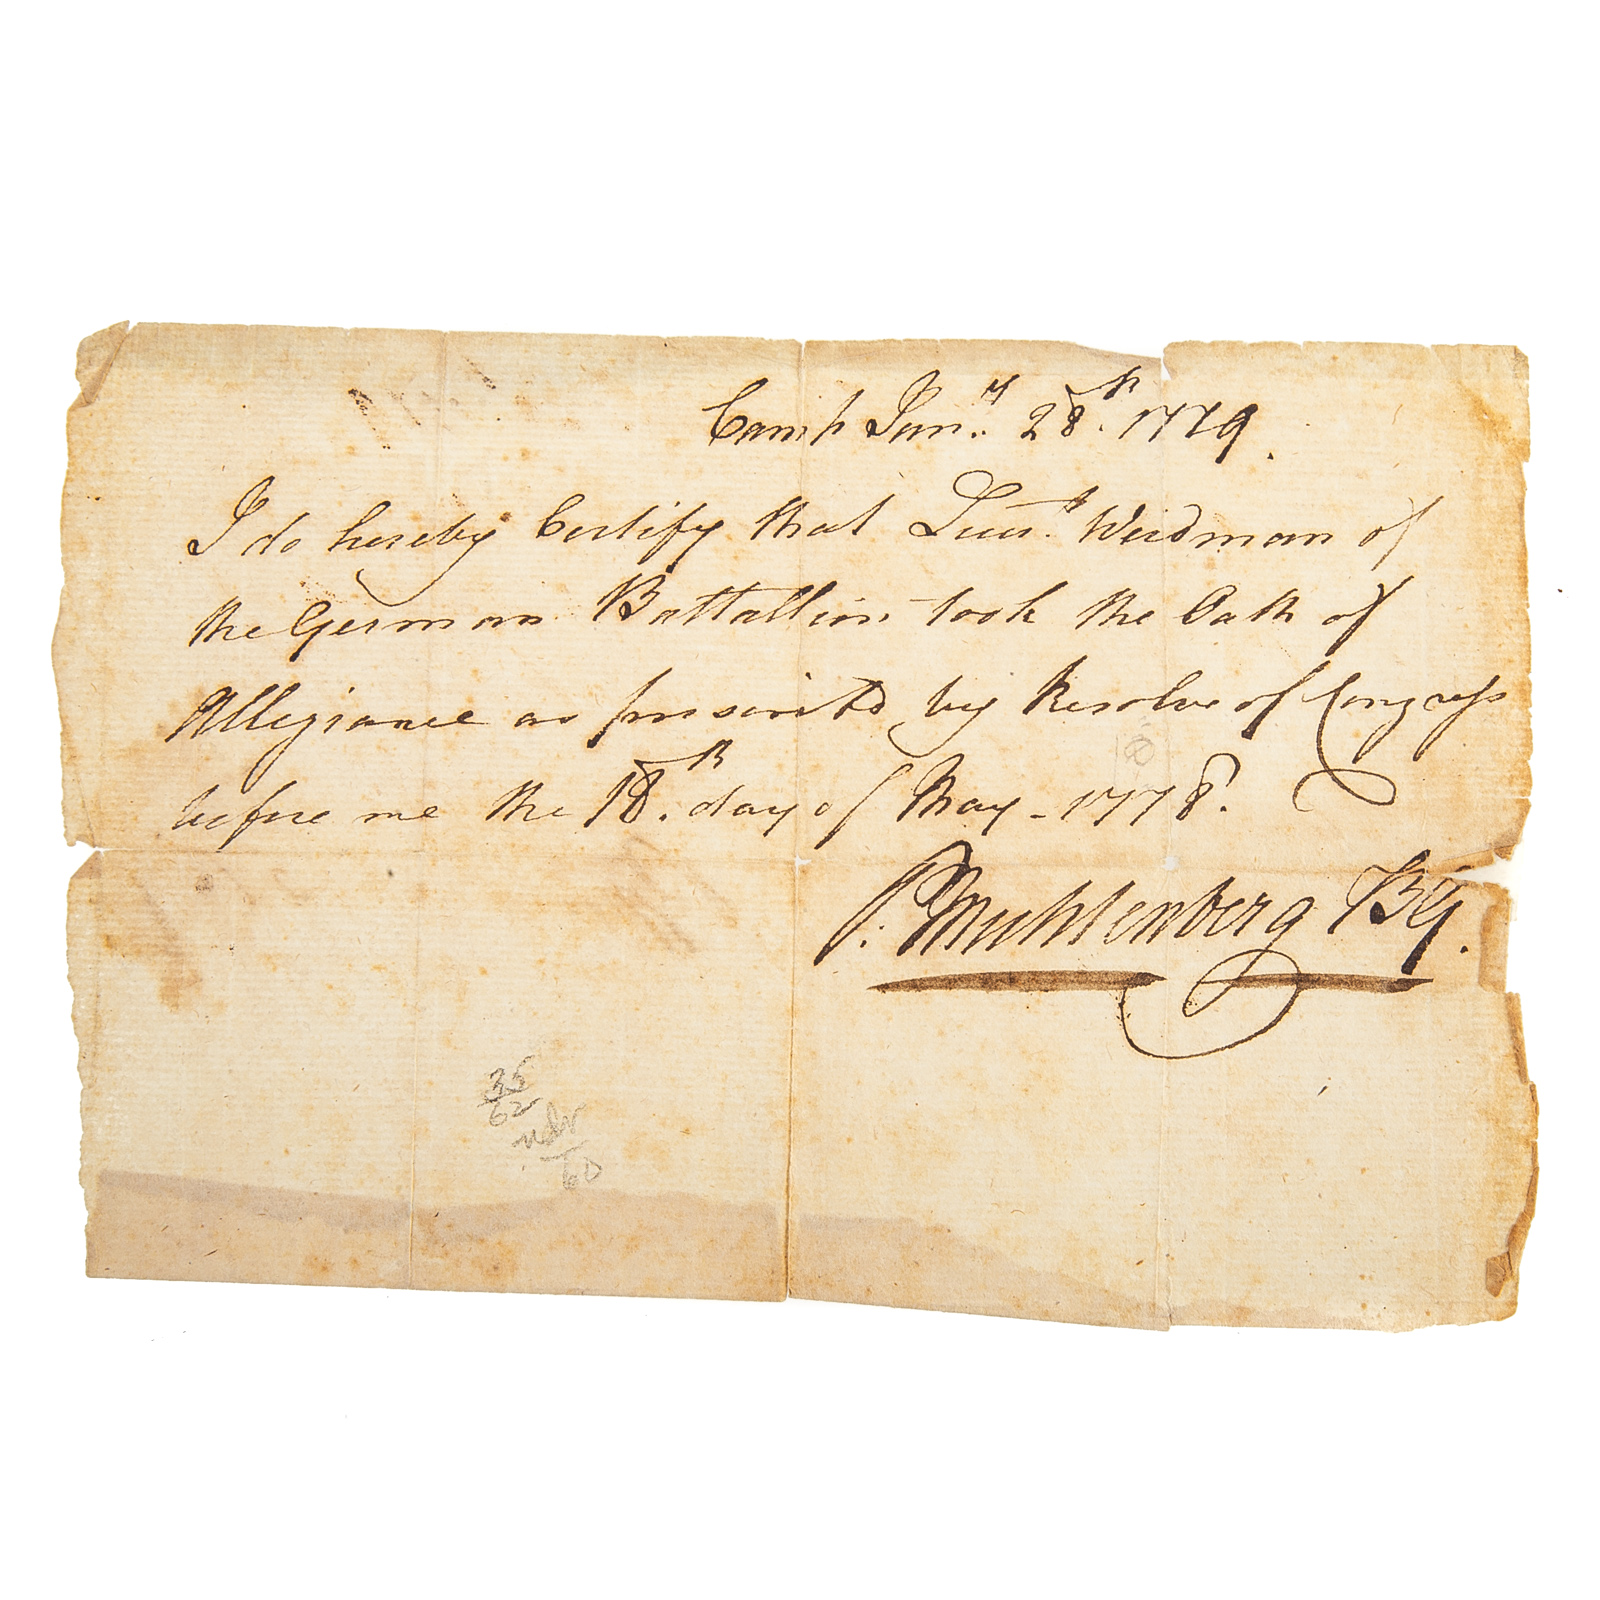 Camp Jan.y 28th. 1779.
I do hereby Certify that Lieut. Weidman of
the German Battallion took the Oath of
Allegiance as prescrib'd by Resolve of Congress
before me the 18th. day of May - 1778.
P: Muhlenberg BG.
35
62
60